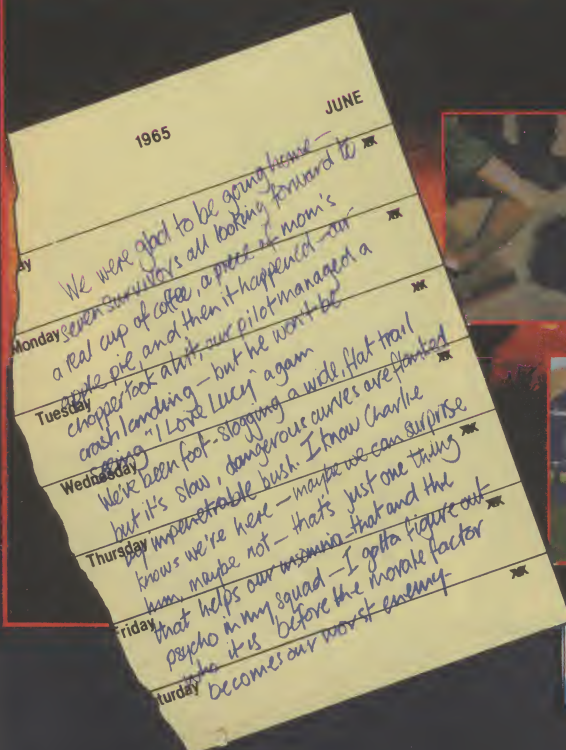 1965
JUNE
ay
Monday
Tuesday
Wednesday
Thursday
Friday
turday
We were glad to be going home —
seven survivors all looking forward to
a real cup of coffee, a piece of mom's
apple pie, and then it happened — our
chopper took a hit, our pilot managed a
crash landing — but he won't be
seeing "I Love Lucy" again
We've been foot-slogging a wide, flat trail
but it's slow, dangerous curves are flanked
by impenetrable bush. I know Charlie
knows we're here — maybe we can surprise
him, maybe not — that's just one thing
that helps our insomnia — that and the
psycho in my squad — I gotta figure out
who it is before the morale factor
becomes our worst enemy